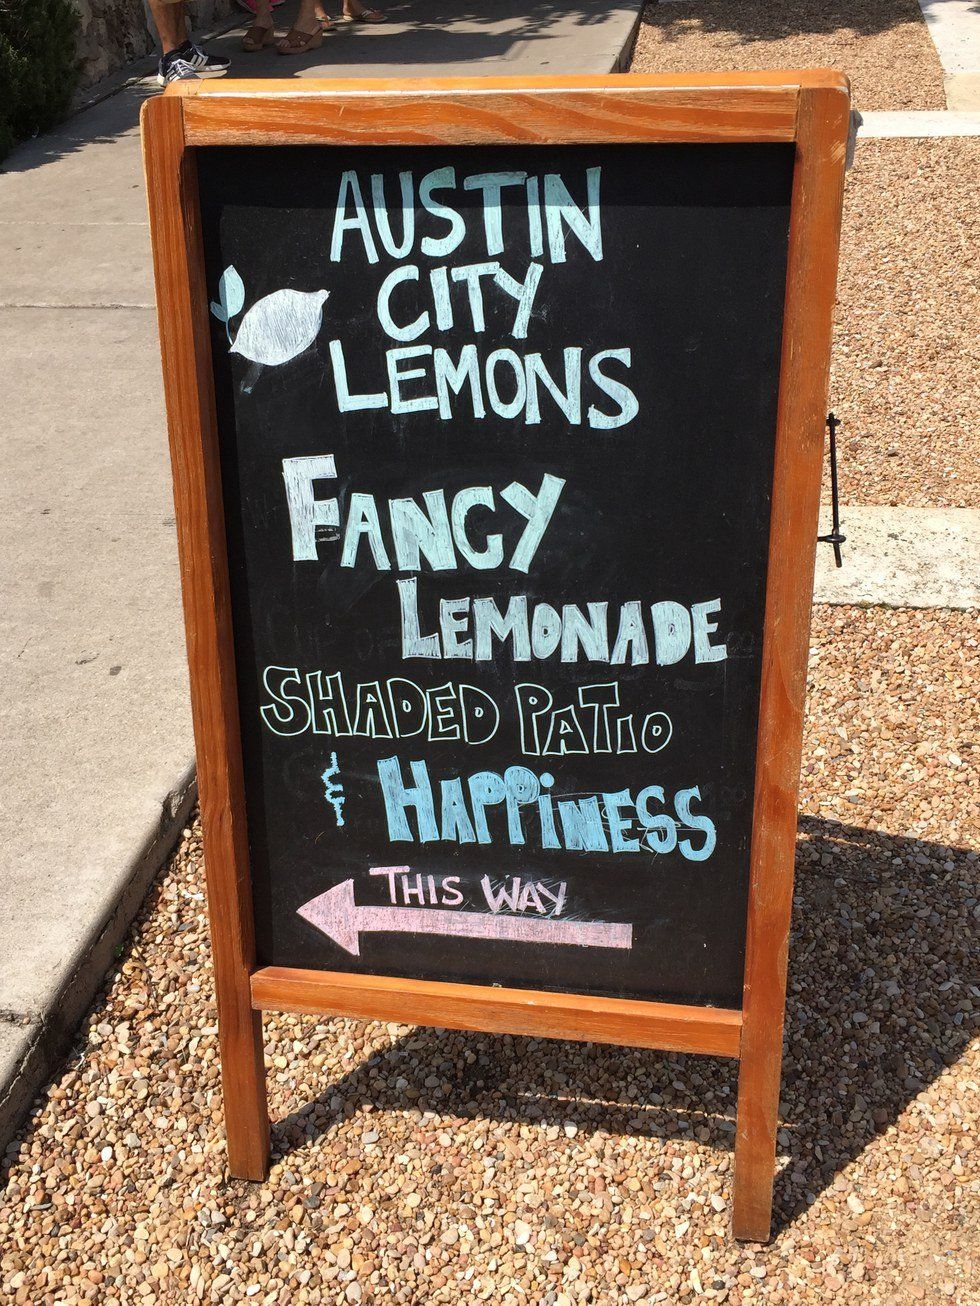 AUSTIN
CITY
LEMONS
FANCY
LEMONADE
SHADED PATIO
& HAPPiNESS
THIS WAY